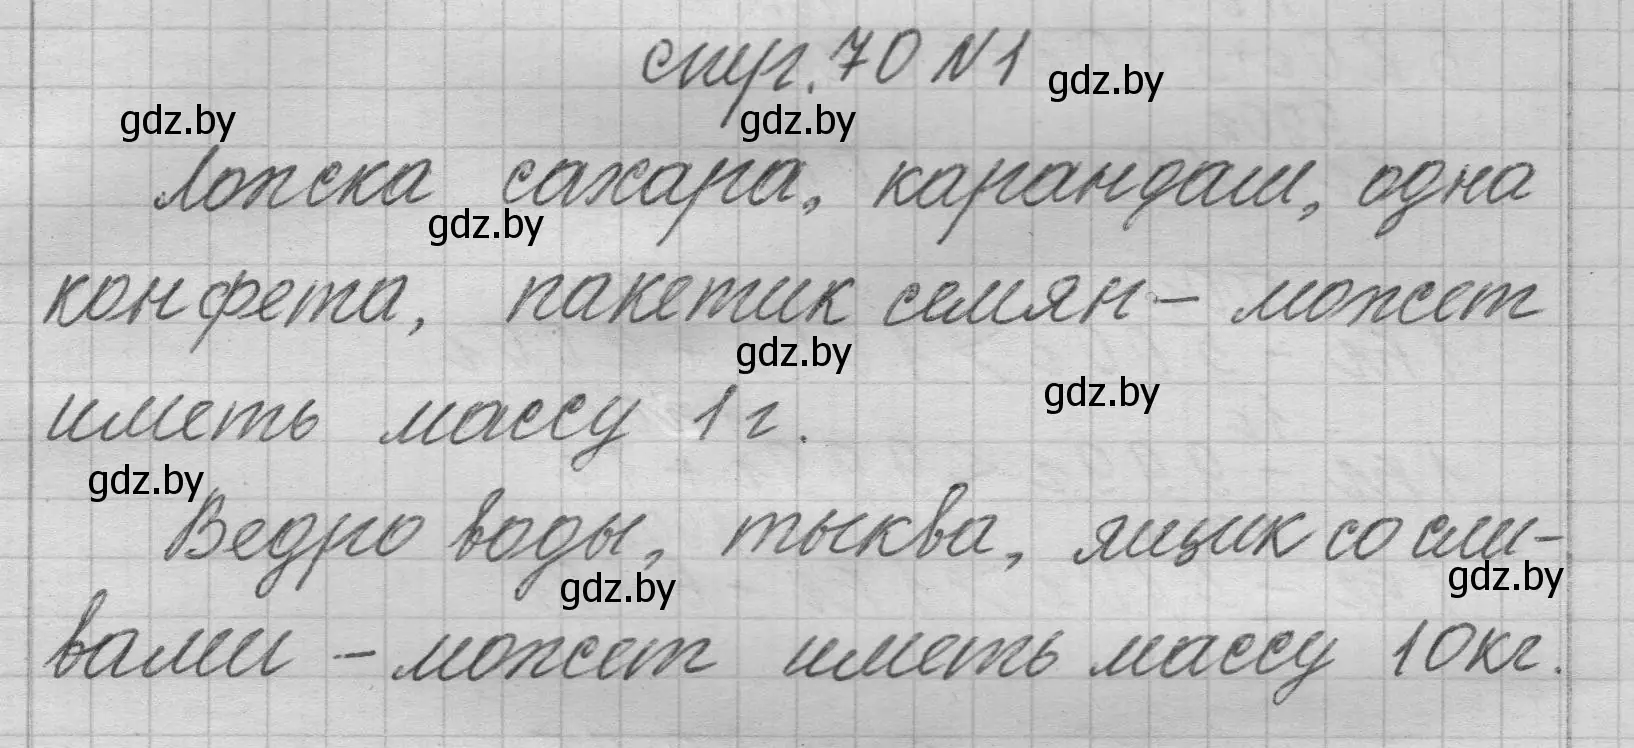 стр. 70 N1 gdz.by
gdz.by gdz.by
Ложка сахара, карандаш, одна
gdz.by
конфета, пакетик семян – может
gdz.by
gdz.by
иметь массу 1 г.
gdz.by
Ведро воды, тыква, ящик со сли-
gdz.by gdz.by
вами – может иметь массу 10 кг.